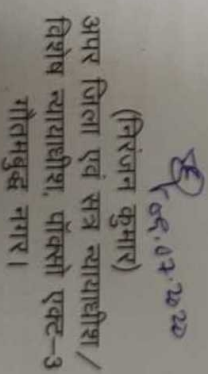 08.07.2020
(निरंजन कुमार)
अपर जिला एवं सत्र न्यायाधीश /
विशेष न्यायाधीश, पॉक्सो एक्ट-3
गौतमबुद्ध नगर।